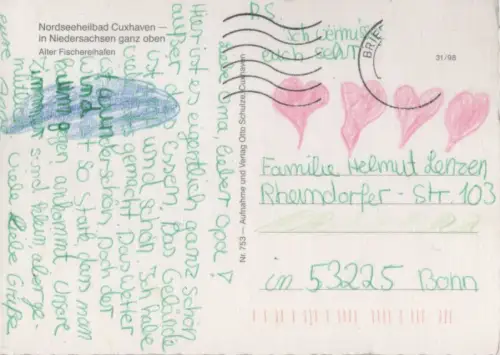 Nordseeheilbad Cuxhaven —
in Niedersachsen ganz oben
Alter Fischereihafen
Liebe Oma, lieber Opa!
Hier ist es eigentlich ganz schön
außer Essen. Das Gelände
ist und schön. Ich habe
gemacht. Das Wetter
ist wunderschön. Doch der
Wind ist so stark, dass man
kaum gegen ankommt. Unsere
Zimmer sind klein, aber ge-
mütlich. Liebe Grüße
eure
Nr. 753 — Aufnahme und Verlag Otto Schulze, Cuxhaven
PS
ich vermisse
euch sehr
BRIEF
31/98
Familie Helmut Lenzen
Rheindorfer-Str. 103
in 53225 Bonn